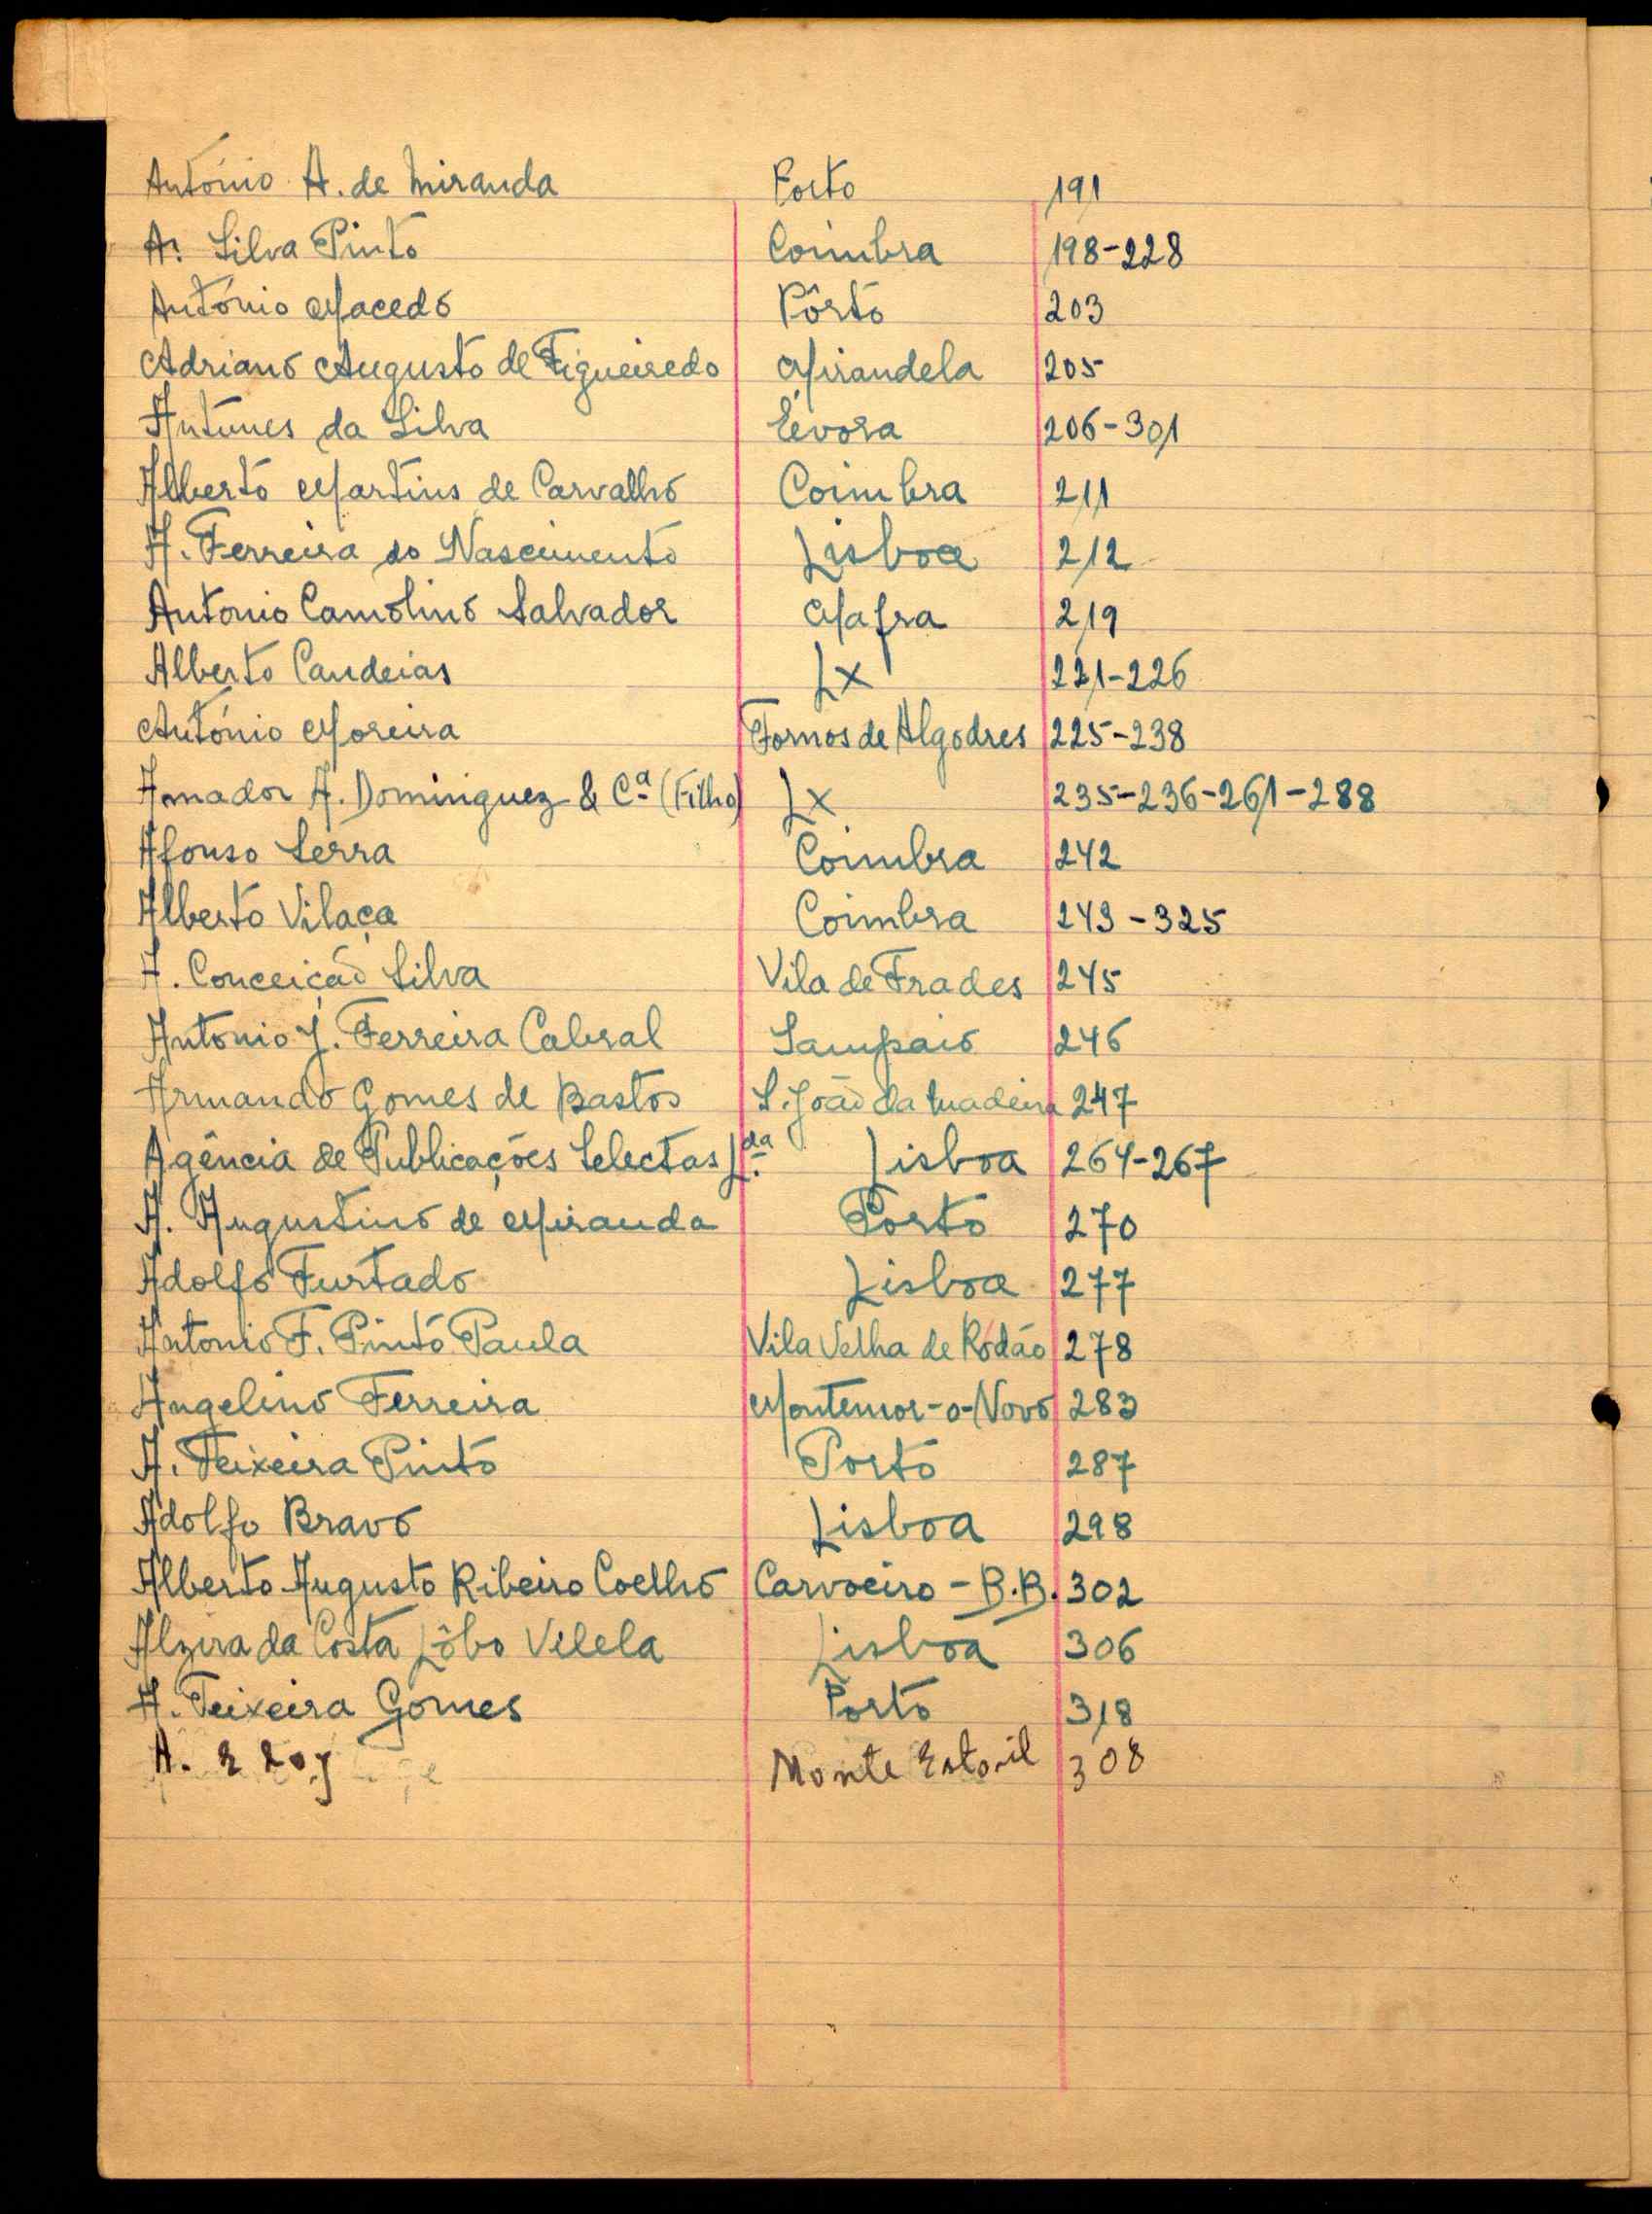 António A. de Miranda Porto 191
A. Silva Pinto Coimbra 198-228
António Macedo Pôrto 203
Adriano Augusto de Figueiredo Mirandela 205
Antunes da Silva Évora 206-301
Alberto Martins de Carvalho Coimbra 211
A. Ferreira do Nascimento Lisboa 212
Antonio Camolino Salvador Mafra 219
Alberto Candeias Lx 221-226
António Moreira Fornos de Algodres 225-238
Amador A. Dominguez & Cª (Filho) Lx 235-236-261-288
Afonso Serra Coimbra 242
Alberto Vilaça Coimbra 243-325
A. Conceição Silva Vila de Frades 245
Antonio J. Ferreira Cabral Sampaio 246
Armando Gomes de Bastos S. João da Madeira 247
Agência de Publicações Selectas L.da Lisboa 264-267
A. Augustino de Miranda Porto 270
Adolfo Furtado Lisboa 277
Antonio F. Pinto Paula Vila Velha de Ródão 278
Angelino Ferreira Montemor-o-Novo 283
A. Teixeira Pinto Porto 287
Adolfo Bravo Lisboa 298
Alberto Augusto Ribeiro Coelho Carvoeiro - B.B. 302
Alzira da Costa Lôbo Vilela Lisboa 306
A. Teixeira Gomes Porto 318
A. Monte Estoril 308